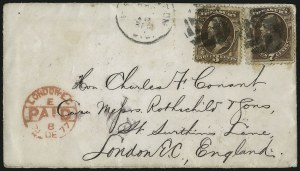 3
7
LONDON
E
PAID
8
DE 77
Hon. Charles F. Conant
Care Messrs. Rothschild & Sons,
St Swithins Lane,
London E.C., England.